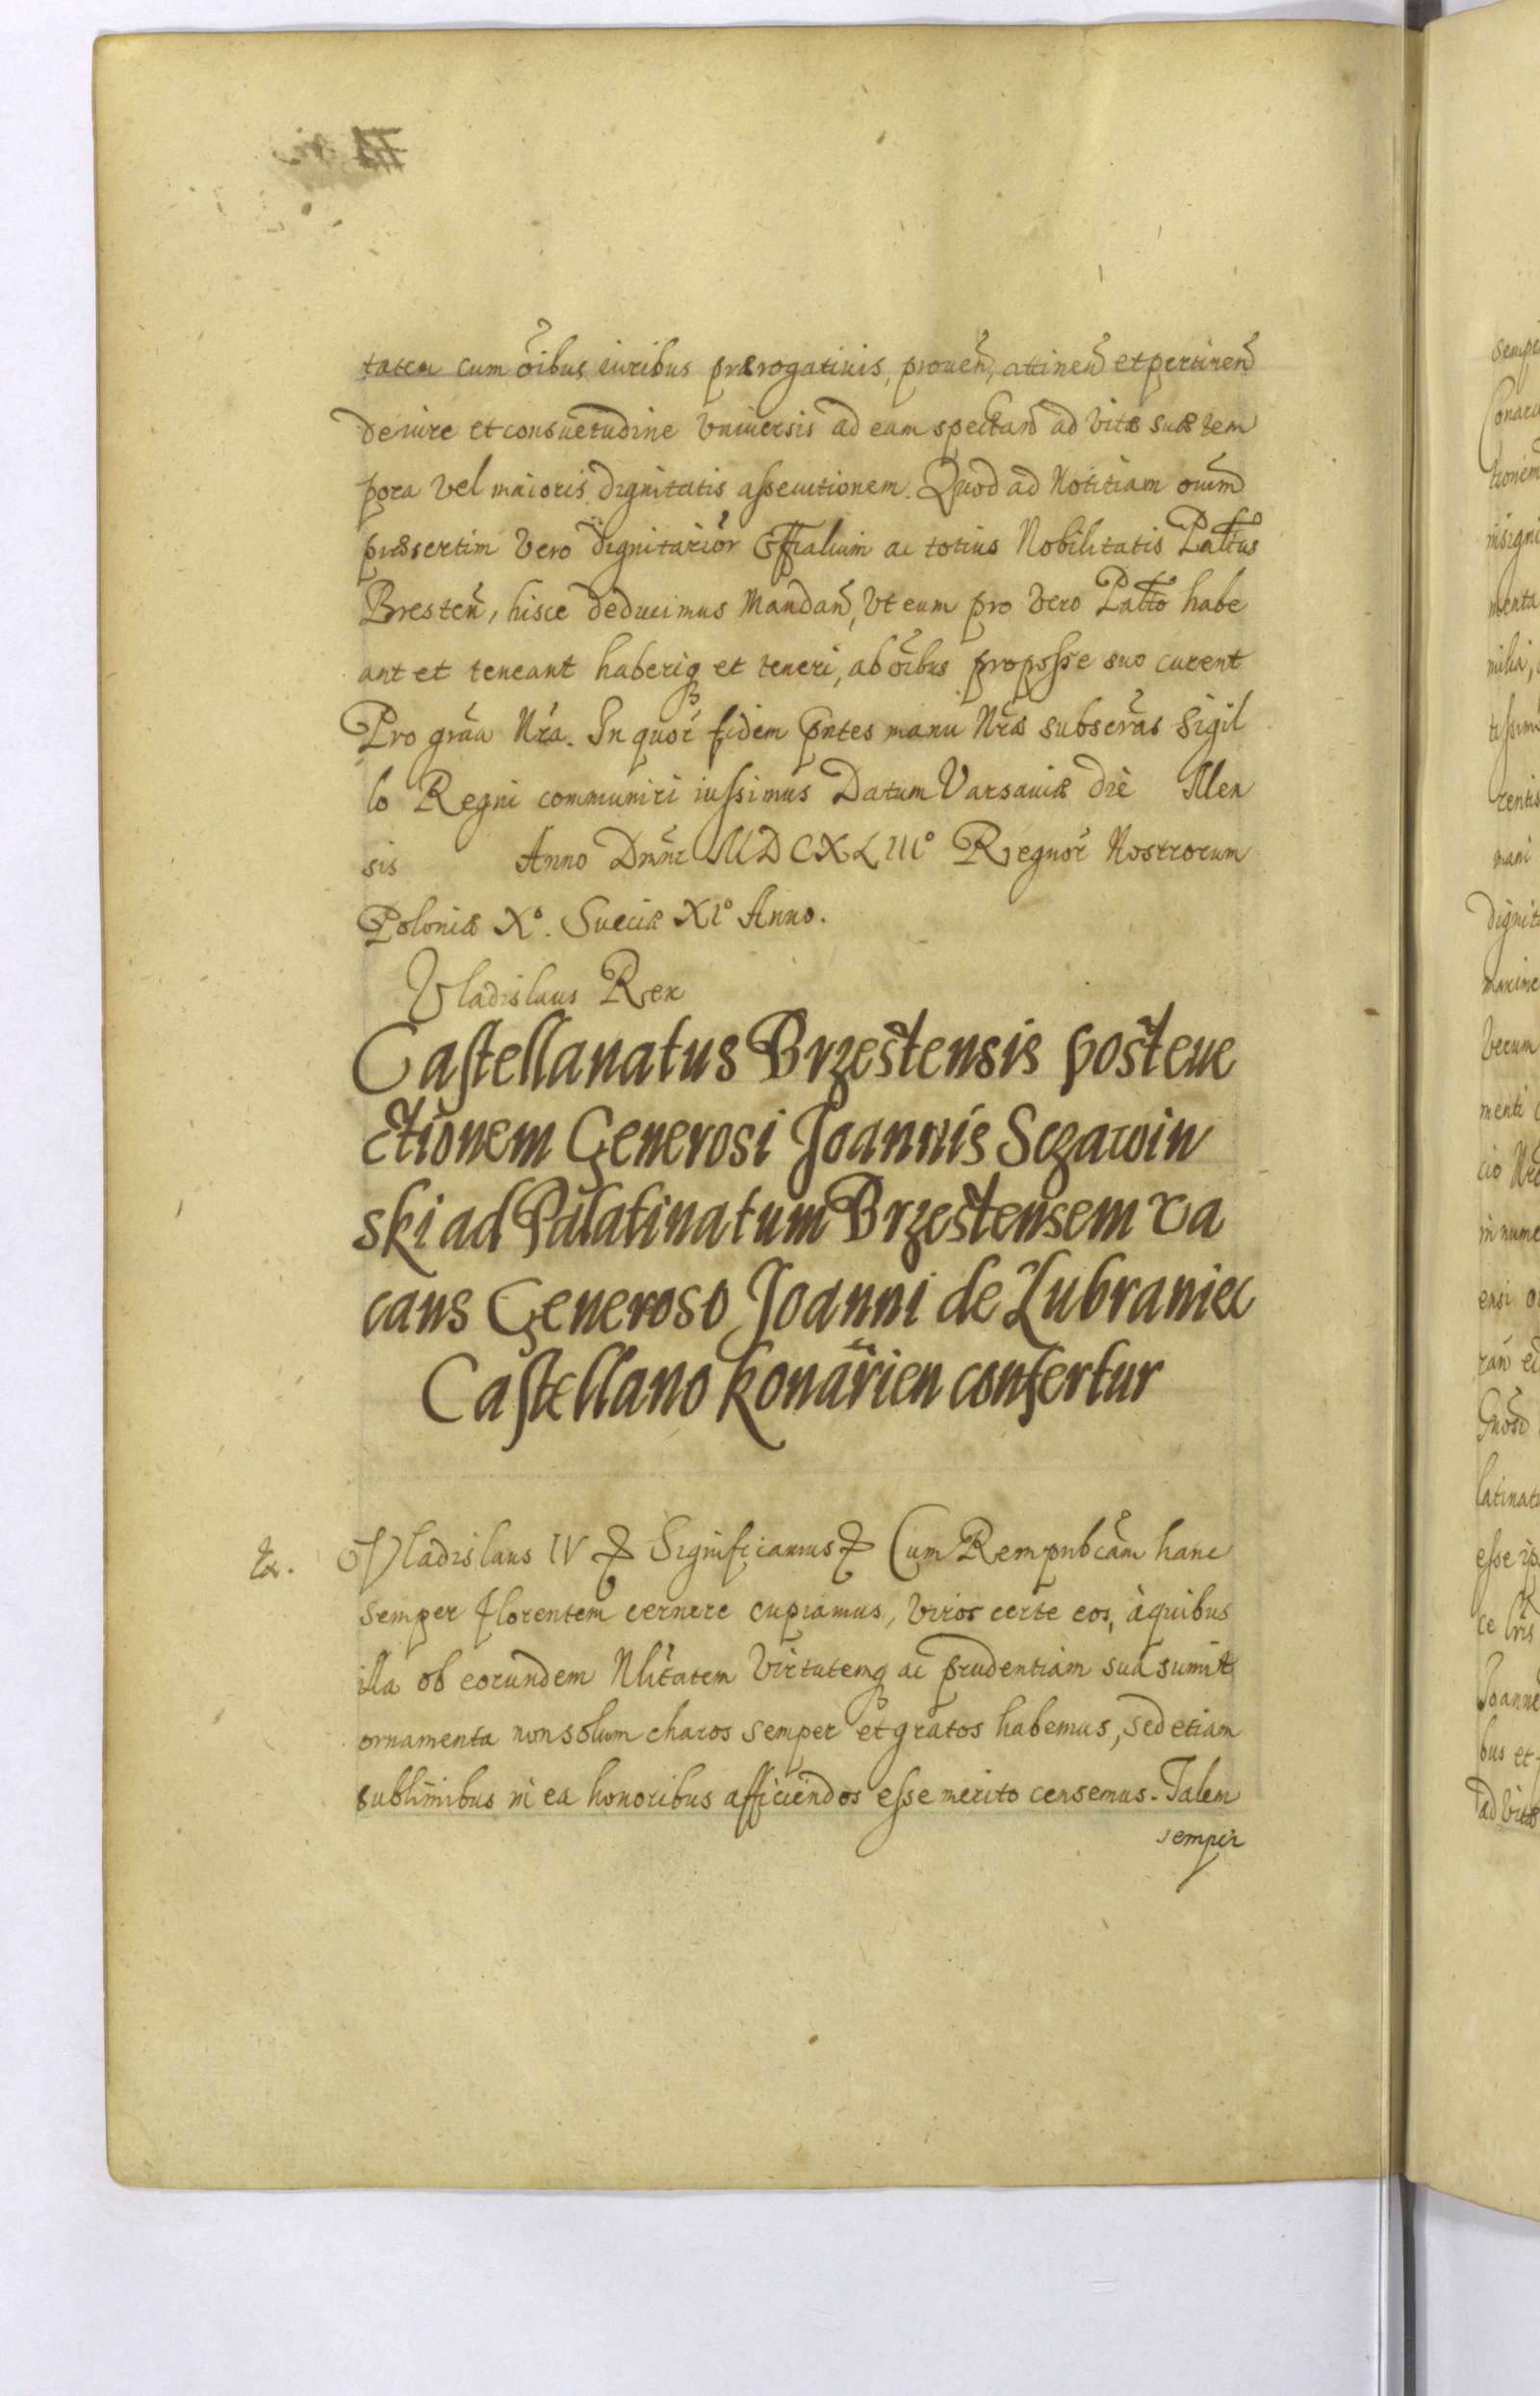 tatem cum õibus iuribus prærogatiuis, proueñ, attineñ et pertineñ
de iure et consuetudine vniuersis ad eam spectañ ad vitæ suæ tem
pora vel maioris dignitatis assecutionem. Quod ad Notitiam oium
præsertim vero dignitarior Offialium ac totius Nobilitatis Palttus
Bresteñ, hisce deducimus Mandañ, Vt eum pro vero Paltto habe
ant et teneant haberiq et teneri, ab õibus pro posse suo curent
Pro grãa Nrã. In quor fidem pntes manu Nrã subscrãs Sigil
lo Regni communiri iussimus Datum Varsauiæ die Men
sis Anno Dnni MDCXLIII° Regnor Nostrorum
Poloniæ X°. Sueciæ XI° Anno.
Vladislaus Rex
Castellanatus Brzestensis post eue
ctionem Generosi Joannis Sczawin
ski ad Palatinatum Brzestensem va
cans Generoso Joanni de Lubraniec
Castellano Konãrien confertur
Vladislaus IV & Significamus & Cum Rempubcãm hanc
semper florentem cernere cupiamus, viros certe eos, à quibus
illa ob eorundem Nlitatem Virtutemq ac prudentiam sua sumit
ornamenta non solum charos semper et gratos habemus, sed etiam
sublimibus in ea honoribus afficiendos esse merito censemus. Talem
semper